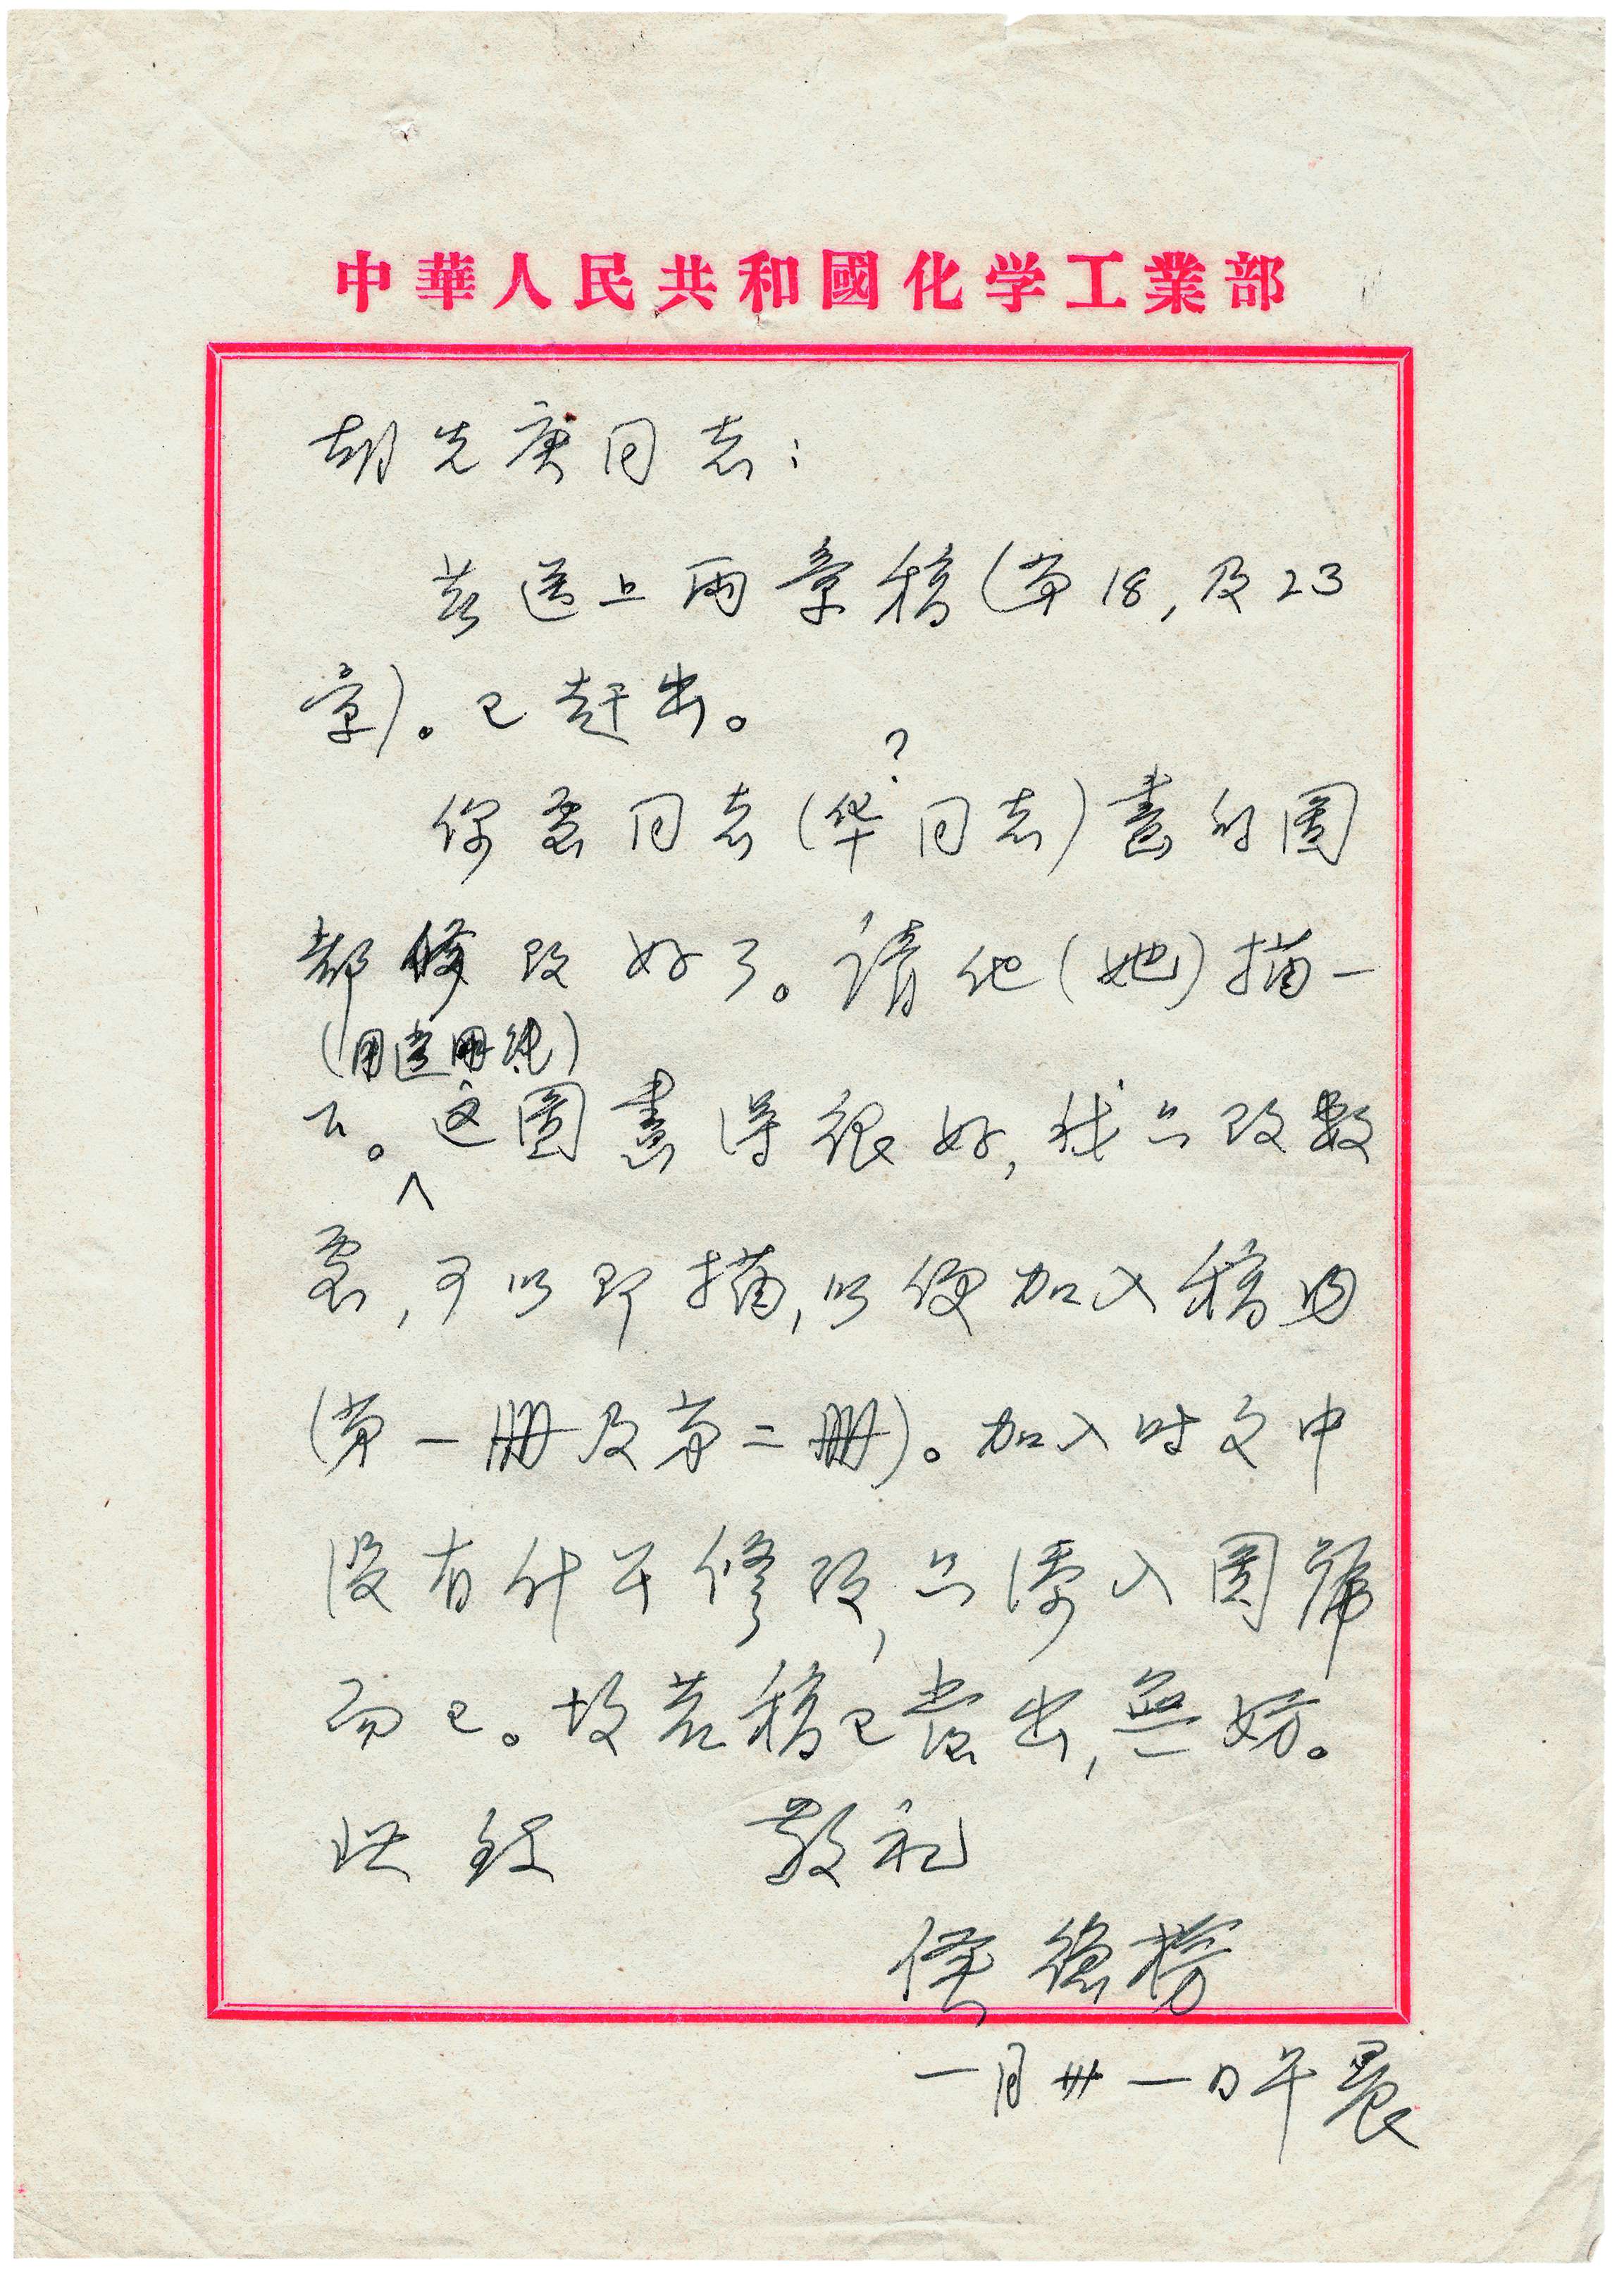 中華人民共和國化学工業部
胡先庚同志:
茲送上两章稿(第18,及23
章)。已赶出。
?
你處同志(华同志)畫的圖
都修改好了。請他(她)描一
(用透明纸)
下。这圖畫得很好,我只改數
處,可以即描,以便加入稿內
(第一册及第二册)。加入时文中
没有什么修改,只添入圖號
而已。故若稿已發出,無妨。
此致 敬礼
侯德榜
一月卅一日午晨